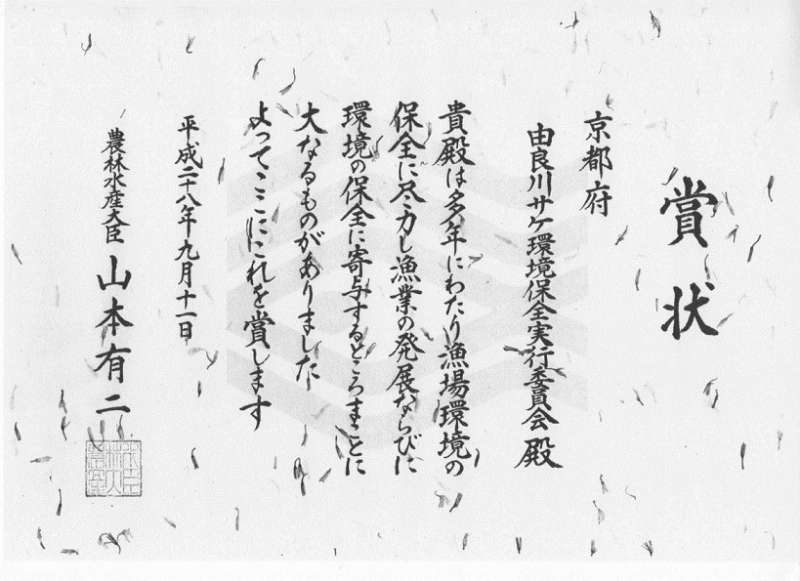 賞状
京都府
由良川サケ環境保全実行委員会 殿
貴殿は多年にわたり漁場環境の
保全に尽力し漁業の発展ならびに
環境の保全に寄与するところまことに
大なるものがありました
よってここにこれを賞します
平成二十八年九月十一日
農林水産大臣 山本有二